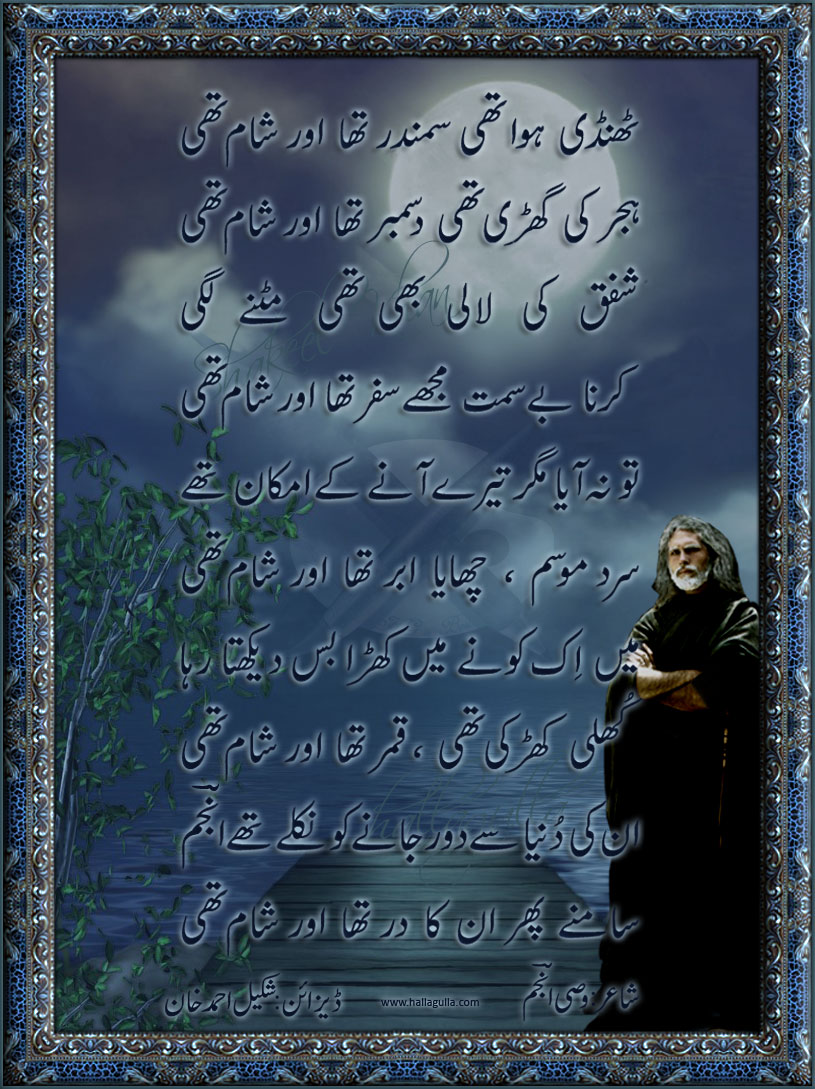 ٹھنڈی ہوا تھی سمندر تھا اور شام تھی
ہجر کی گھڑی تھی دسمبر تھا اور شام تھی
شفق کی لالی بھی تھی مٹنے لگی
کرنا بے سمت مجھے سفر تھا اور شام تھی
تو نہ آیا مگر تیرے آنے کے امکان تھے
سرد موسم ، چھایا ابر تھا اور شام تھی
میں اِک کونے میں کھڑا بس دیکھتا رہا
کُھلی کھڑکی تھی ، قمر تھا اور شام تھی
ان کی دُنیا سے دور جانے کو نکلے تھے انجم
سامنے پھر ان کا در تھا اور شام تھی
شاعر: وصی انجم www.hallagulla.com ڈیزائن: شکیل احمد خان